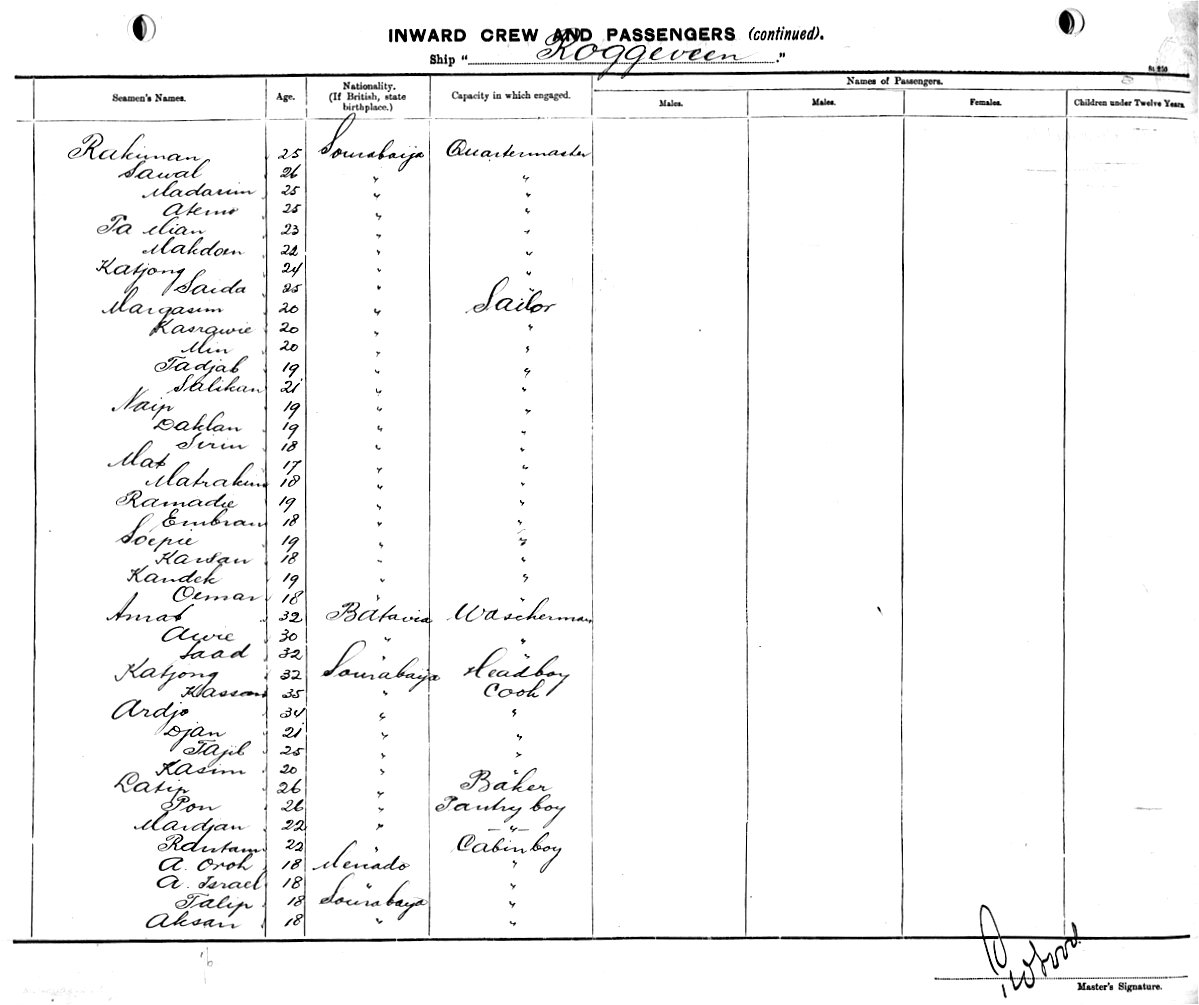 INWARD CREW AND PASSENGERS (continued).
Ship "Roggeveen."
Seamen's Names. Age. Nationality. (If British, state birthplace.) Capacity in which engaged. Names of Passengers.
Males. Males. Females. Children under Twelve Years.
Rakiman 25 Sourabaija Quartermaster
Sawal 26 " "
Madarim 25 " "
Atemo 25 " "
Pa Mian 23 " "
Makdoen 22 " "
Katjong 24 " "
Saida 25 " "
Margasim 20 " Sailor
Kasrawie 20 " "
Min 20 " "
Tadjab 19 " "
Salikan 21 " "
Naip 19 " "
Daklan 19 " "
Sirin 18 " "
Mat 17 " "
Matrakim 18 " "
Ramadie 19 " "
Embran 18 " "
Soepie 19 " "
Karsan 18 " "
Kandek 19 " "
Oemar 18 " "
Amat 32 Batavia Wascherman
Awie 30 " "
Saad 32 " "
Katjong 32 Sourabaija Headboy
Kassom 35 " Cook
Ardjo 34 " "
Djan 21 " "
Tajib 25 " "
Kasim 20 " "
Latip 26 " Baker
Pon 26 " Pantry boy
Mardjan 22 " "
Rustam 22 " Cabinboy
A. Oroh 18 Menado "
A. Israel 18 " "
Talip 18 Sourabaya "
Aksan 18 " "
Master's Signature.